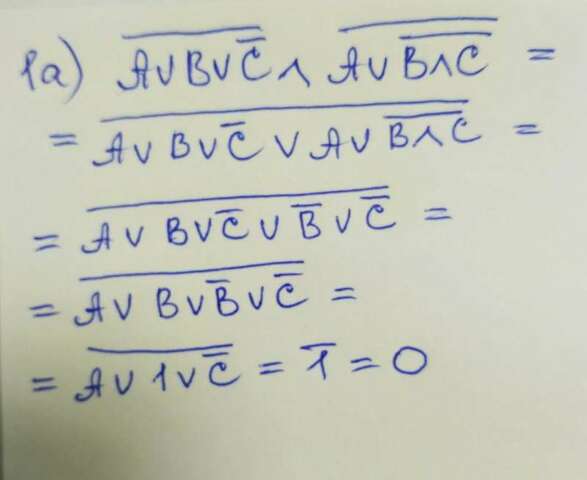 1a) \overline{A∨B∨\overline{C}} ∧ \overline{A∨\overline{B∧C}} =
= \overline{A∨B∨\overline{C}∨A∨\overline{B∧C}} =
= \overline{A∨B∨\overline{C}∨\overline{B}∨\overline{C}} =
= \overline{A∨B∨\overline{B}∨\overline{C}} =
= \overline{A∨1∨\overline{C}} = \overline{1} = 0